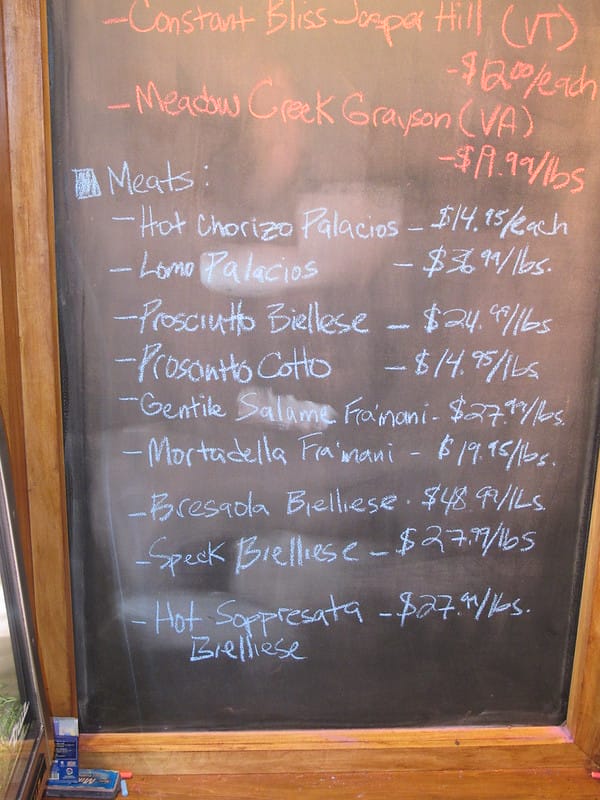 -Constant Bliss Jasper Hill (VT)
-$12.00/each
-Meadow Creek Grayson (VA)
-$19.99/lbs
Meats:
-Hot Chorizo Palacios - $14.95/each
-Lomo Palacios - $36.99/lbs.
-Prosciutto Biellese - $24.99/lbs
-Proscntto Cotto - $14.95/lbs
-Gentile Salame Fra'mani - $27.99/lbs.
-Mortadella Fra'mani - $19.95/lbs.
-Bresaola Bielliese - $48.99/Lbs
-Speck Bielliese - $27.99/lbs
-Hot Soppresata - $27.99/lbs.
Bielliese